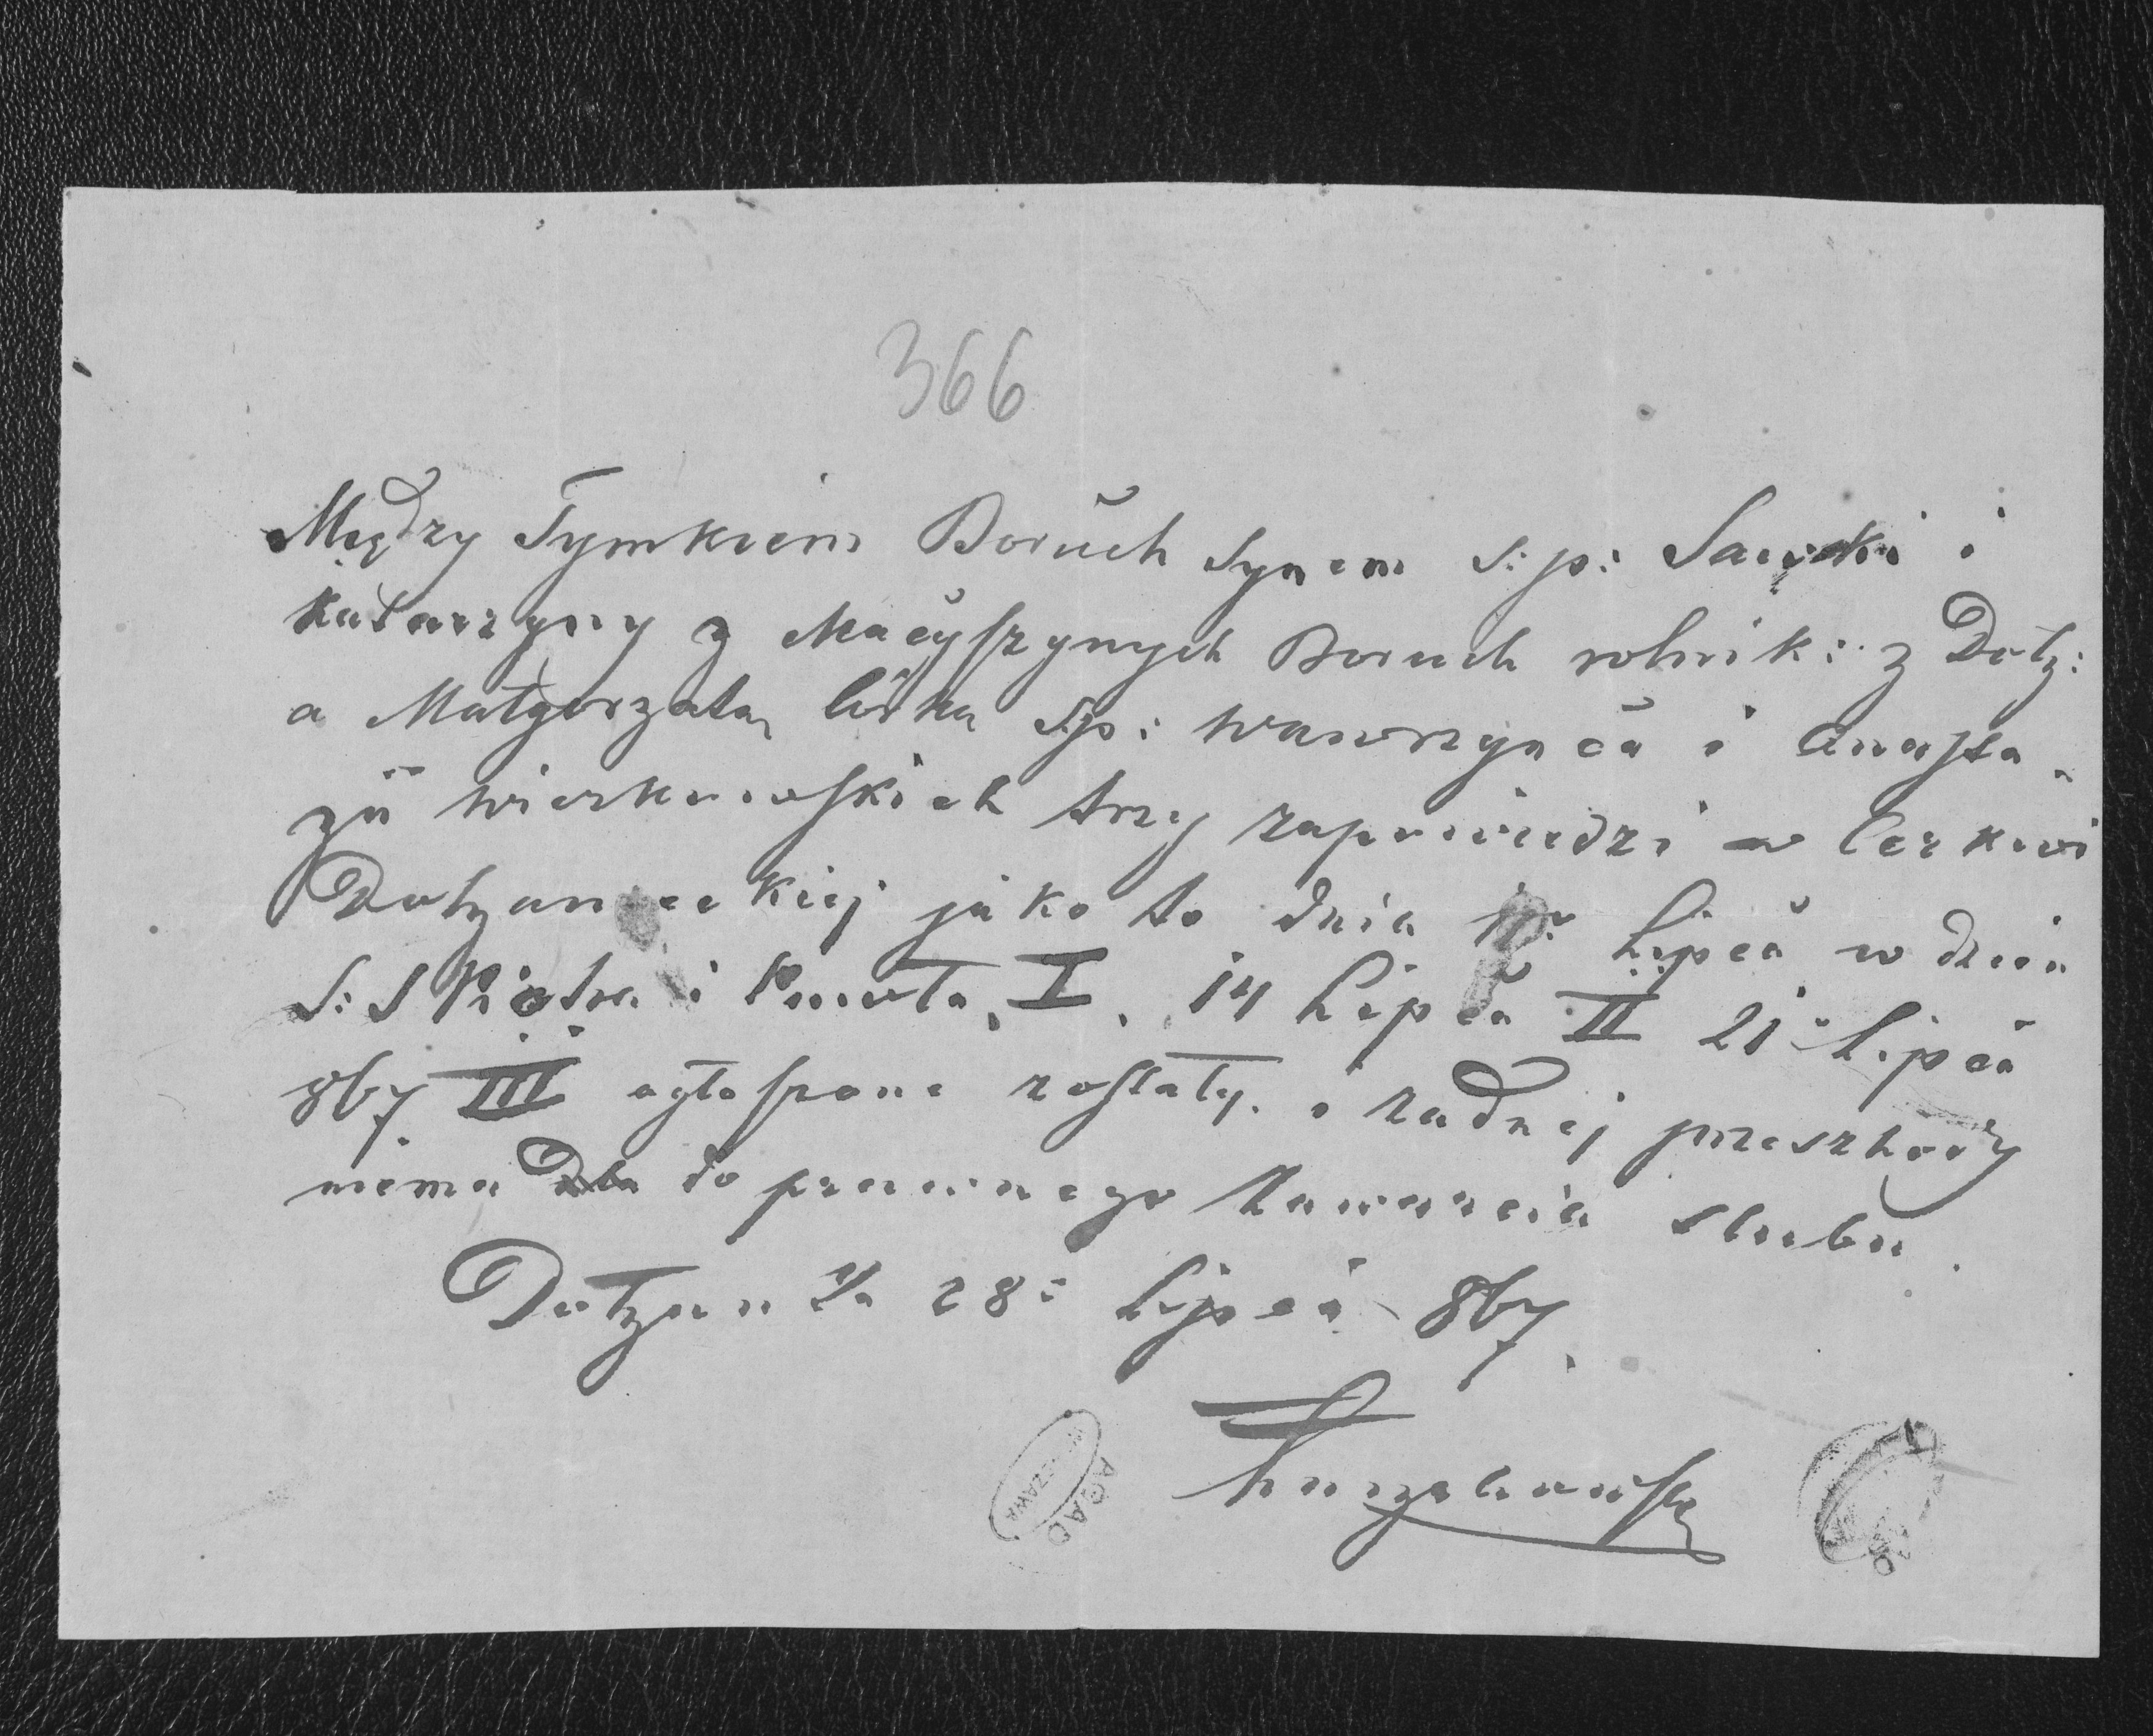 366
Między Tymkiem Boruch Synem s:p: Sawki i
Katarzyny z Maćyszynych Boruch rolnik: z Dołż:
a Małgorzatą Córka s:p: Wawrzyńca i Anasta-
zii Wierkowskich trzy zapowiedzi w Cerkwi
Dołżanieckiej jako to dnia Lipca w dzień
S: S Piotra i Pawła, I, 14 Lipca II 21 Lipca
867 III ogłoszone zostały. i żadnej przeszkody
niema do prawnego zawarcia slubu.
Dołżanka 28: Lipca 867.
AGAD
WARSZAWA